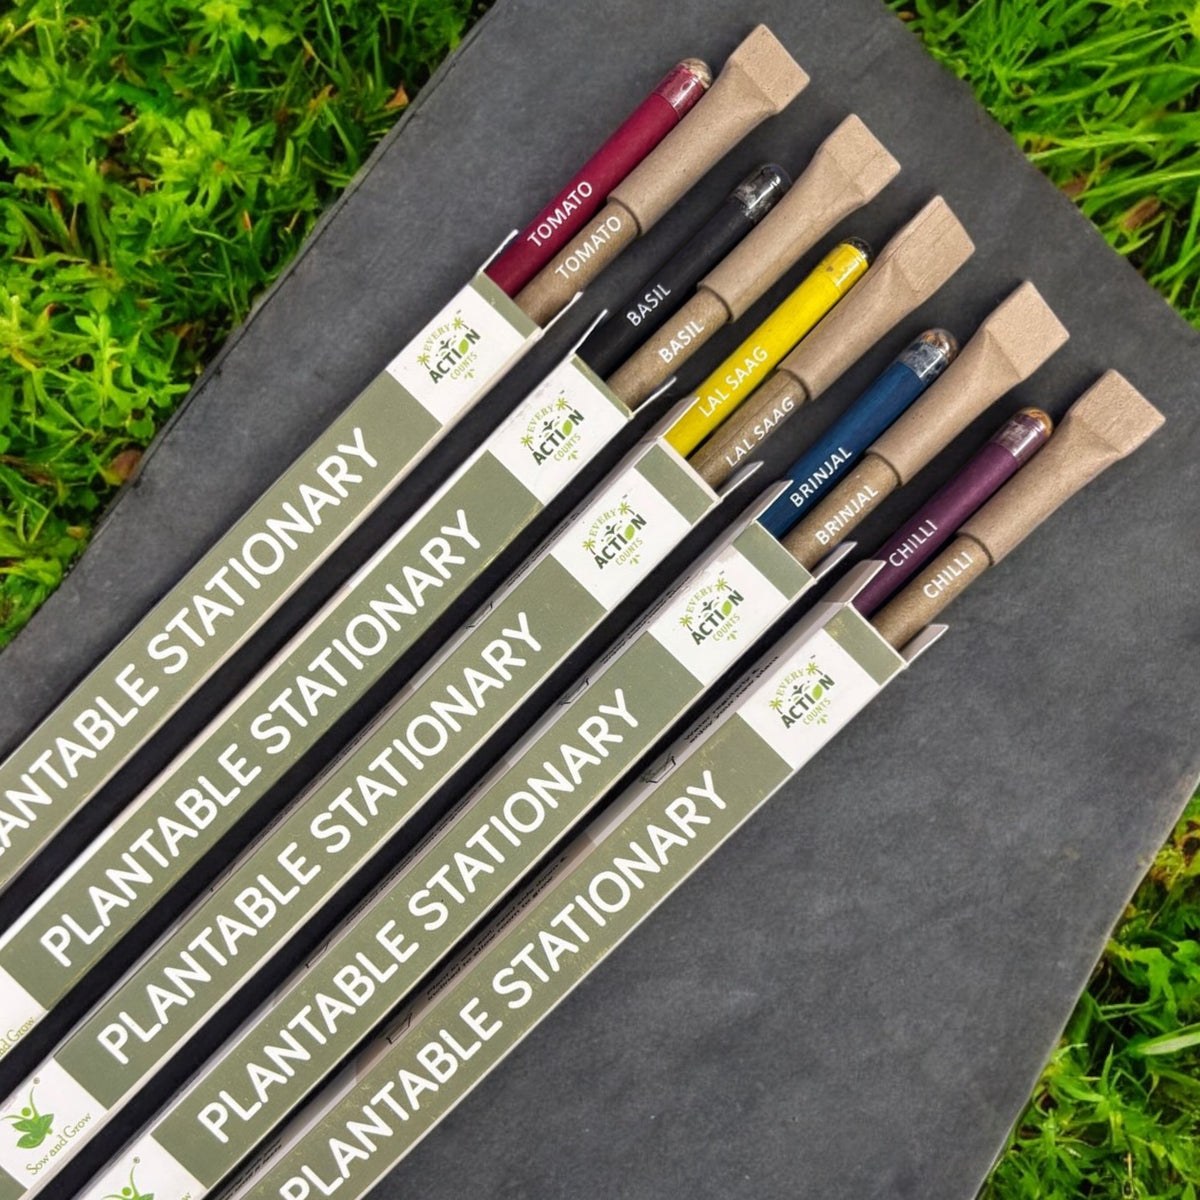 TOMATO
TOMATO
BASIL
BASIL
LAL SAAG
LAL SAAG
BRINJAL
BRINJAL
CHILLI
CHILLI
EVERY
ACTION
COUNTS
™
PLANTABLE STATIONARY
EVERY
ACTION
COUNTS
™
PLANTABLE STATIONARY
Sow and Grow
EVERY
ACTION
COUNTS
™
PLANTABLE STATIONARY
®
Sow and Grow
EVERY
ACTION
COUNTS
™
PLANTABLE STATIONARY
®
EVERY
ACTION
COUNTS
™
PLANTABLE STATIONARY